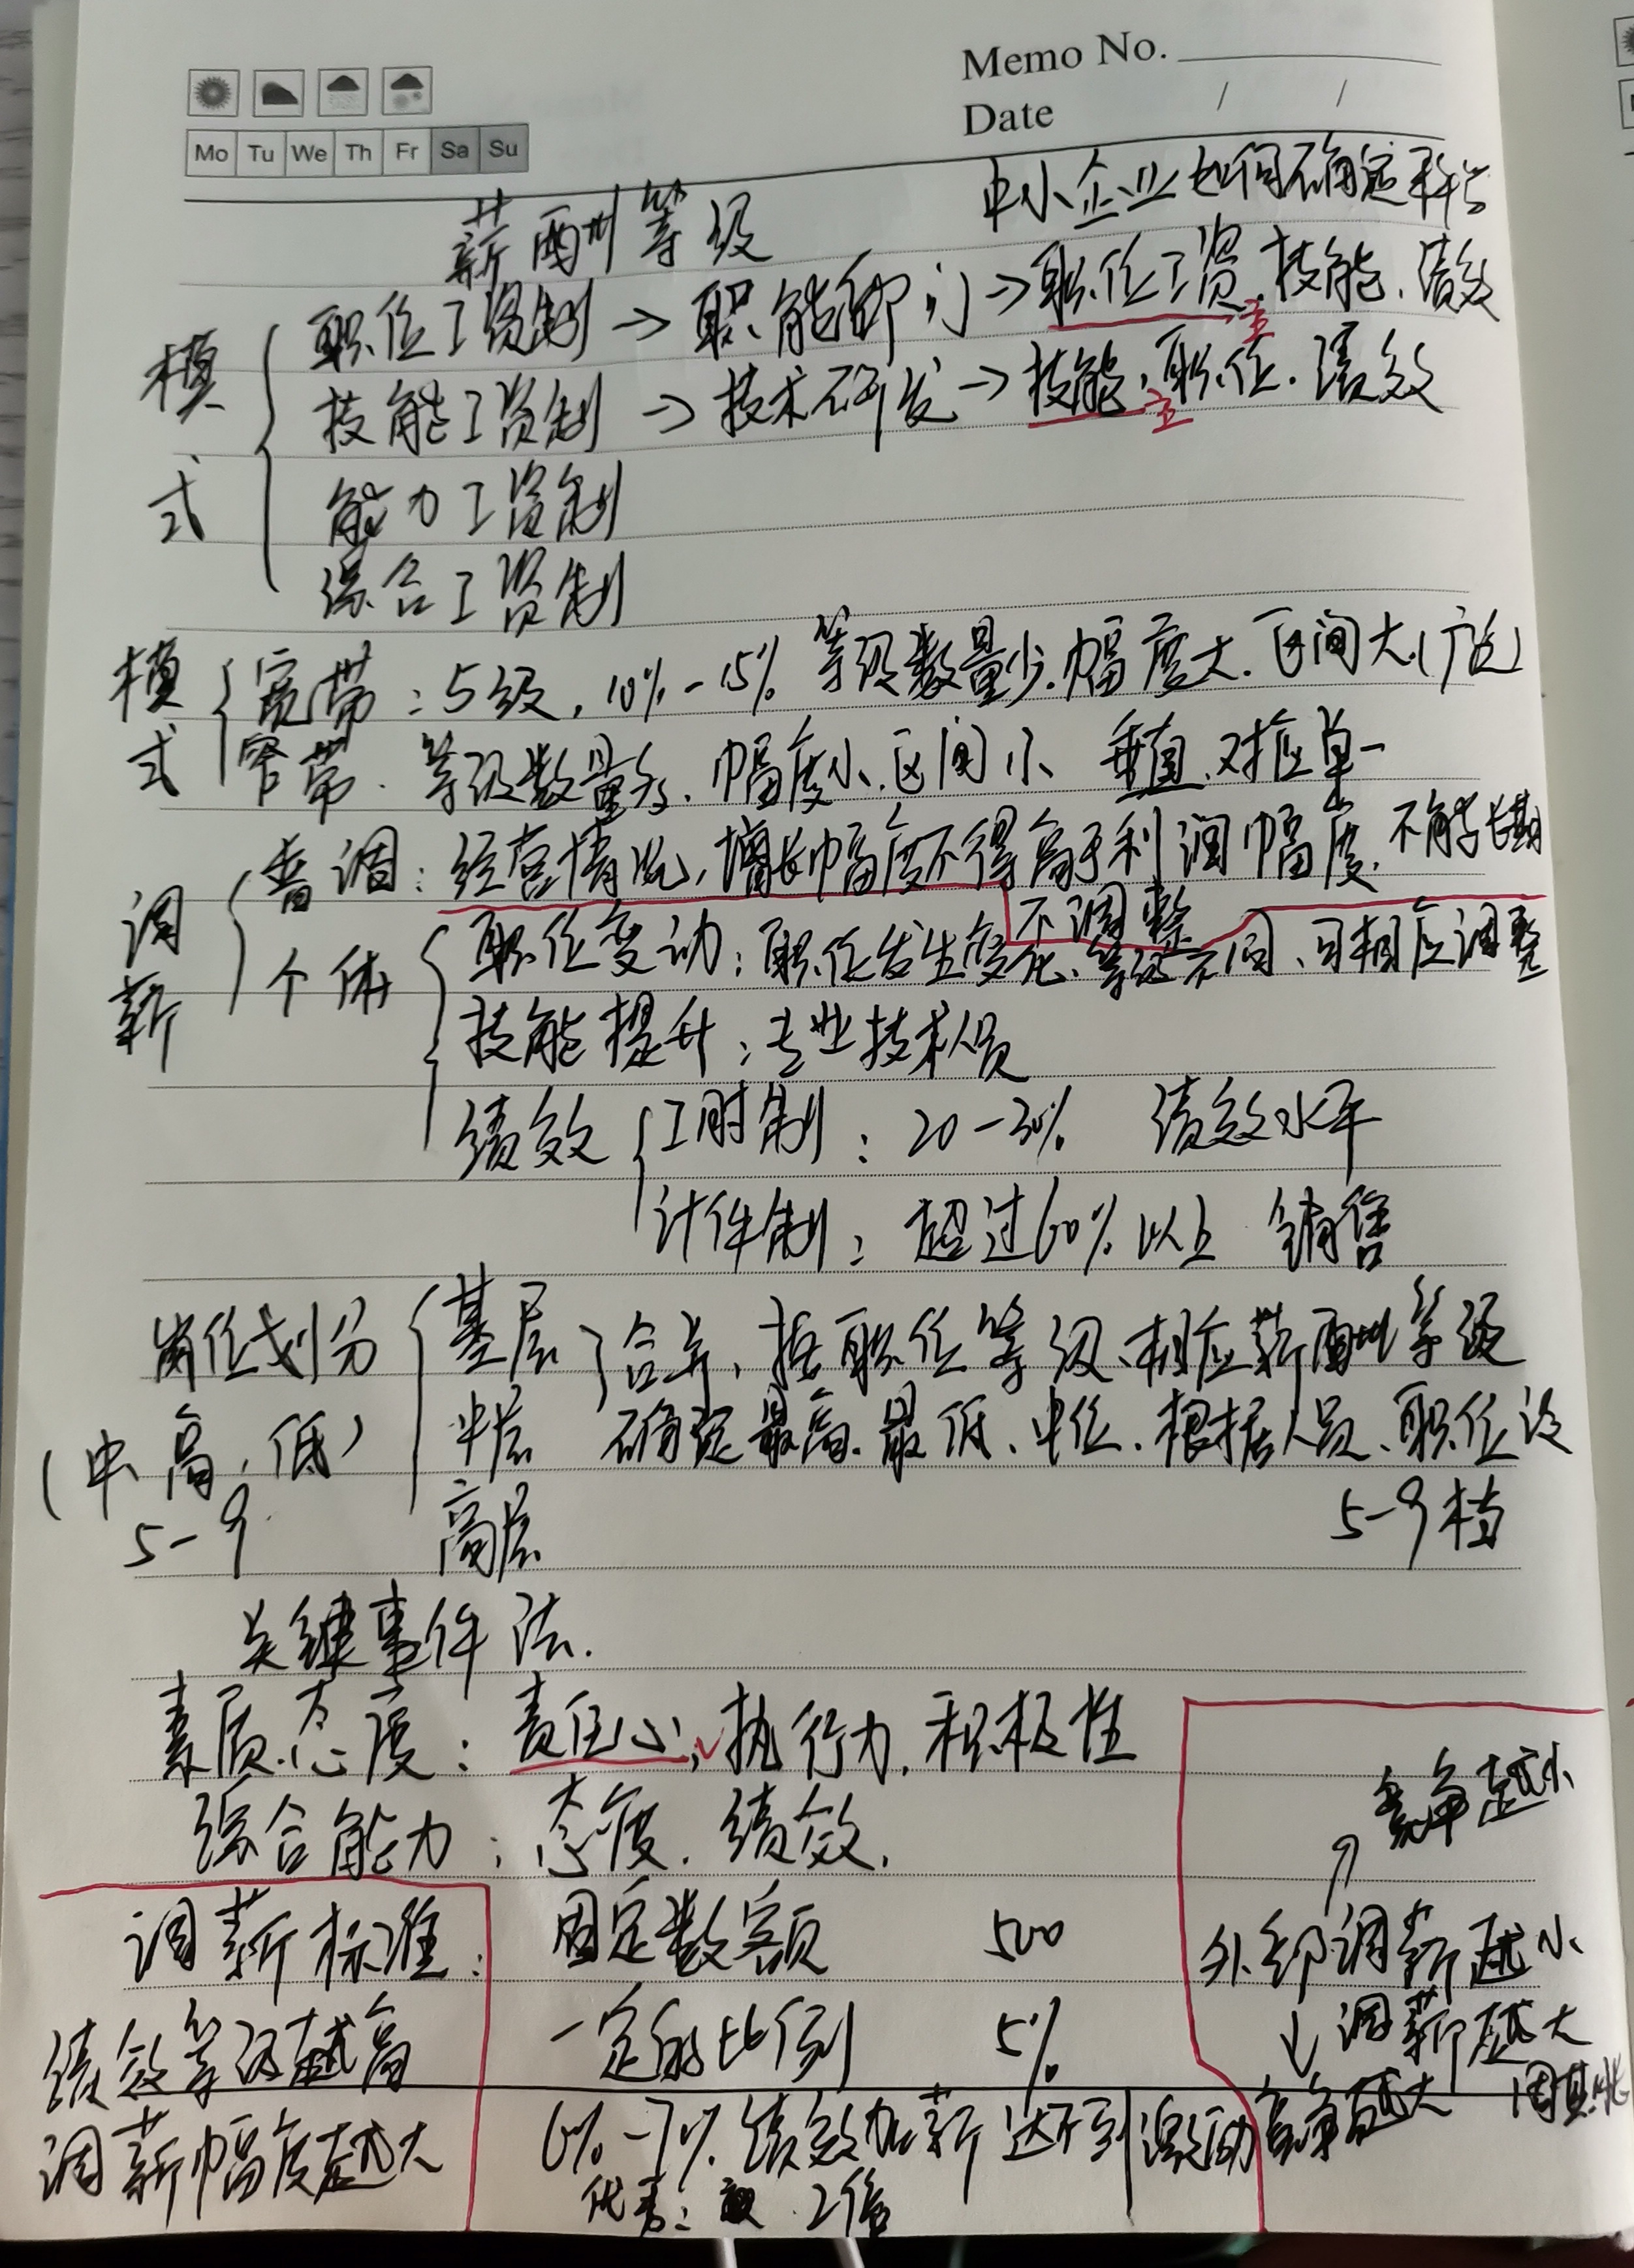 Memo No.
Date / /
Mo Tu We Th Fr Sa Su
中小企业如何确定
薪酬等级
模式
职位工资制 → 职能部门 → 职位工资、技能、绩效
主
技能工资制 → 技术研发 → 技能、职位、绩效
主
能力工资制
综合工资制
模式
宽带：5级，10%-15% 等级数量少、幅度大、区间大
窄带、等级数量多、幅度小、区间小 垂直、对应单一
调薪
普调：经营情况，增长幅度不得高于利润幅度，不能长期
不调整
个体
职位变动：职位发生变化、等级不同、可相应调整
技能提升：专业技术人员
绩效
工时制：20-30% 绩效水平
计件制：超过60%以上 销售
岗位划分
(中、高、低)
5-9
基层 合并、按职位等级、相应薪酬等级
中层 确定最高、最低、中位、根据人员、职位设
高层 5-9档
关键事件法.
素质、态度：责任心，执行力，积极性
综合能力：态度、绩效、
调薪标准：固定数额 500
绩效等级越高 一定的比例 5%
调薪幅度越大 6%-7%绩效加薪达不到激励
2倍
竞争越小
↑
外部调薪越小
↓调薪越大
竞争越大